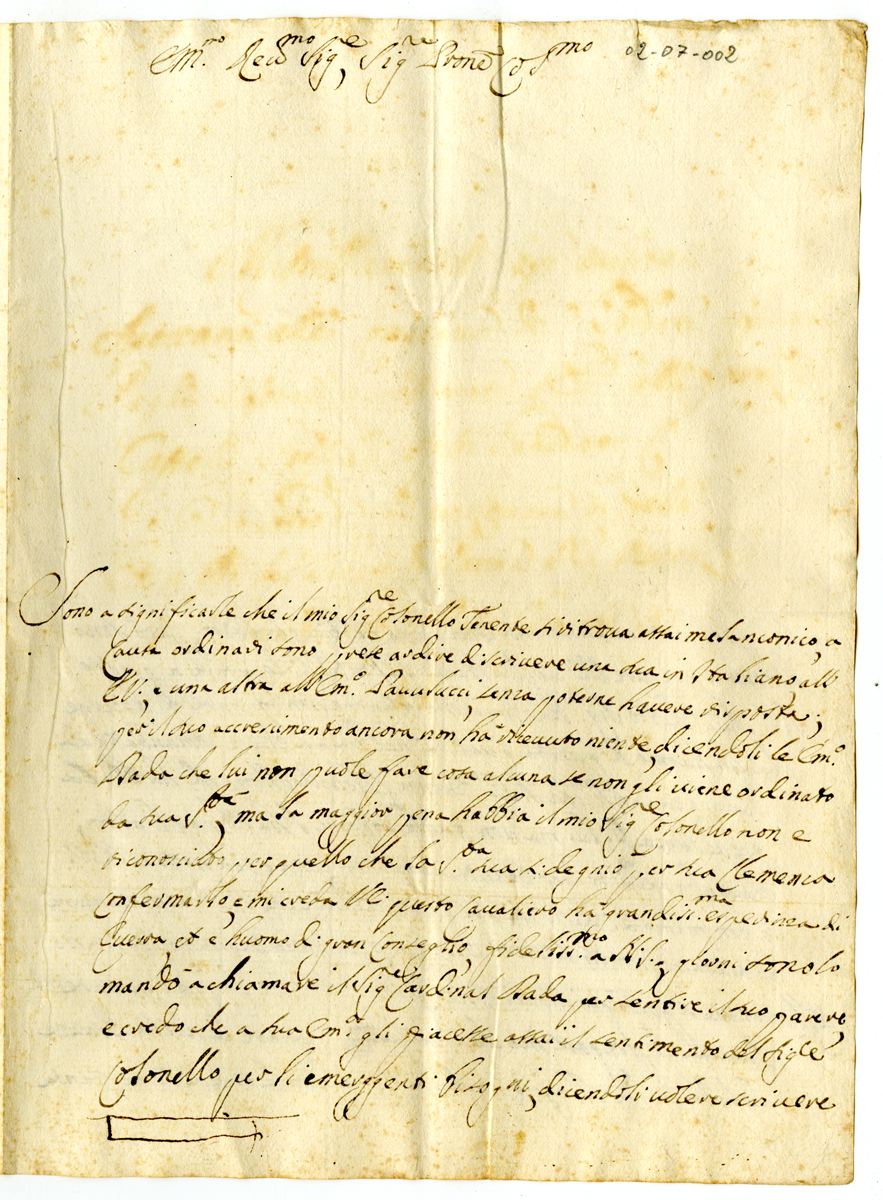 Em.mo Reu.mo Sig.re, Sig.re Prone Co S.mo 02-07-002
Sono a significarle che il mio Sig.re Colonello Tenente si ritroua assai melanconico, a
causa ordinari sono prese ardire di scriuere una sua in Italiano, all'
E.V., e una altra all'Em.o Pauulucci, senza poterne hauere risposta;
per il suo accrescimento ancora non ha riceuuto niente, dicendoli le Em.o
Dada che lui non puole fare cosa alcuna se non gli uiene ordinato
da sua S.tà, ma la maggior pena habbia il mio Sig.re Colonello non e
riconosciuto per quello che la S.tà sua si degnio per sua Clemenza
confermarlo, e mi creda V.E. questo Caualiero ha grandiss.ma esperienza di
Guerra, et è huomo di gran Conseglio, fideliss.mo a N.S., giorni sono lo
mandò a chiamare il Sig.e Cardinal Dada per sentire il suo parere,
e credo che a sua Em.a gli piacesse assai il sentimento del Sig.re
Colonello per li emergenti bisogni, dicendoli uolere scriuere